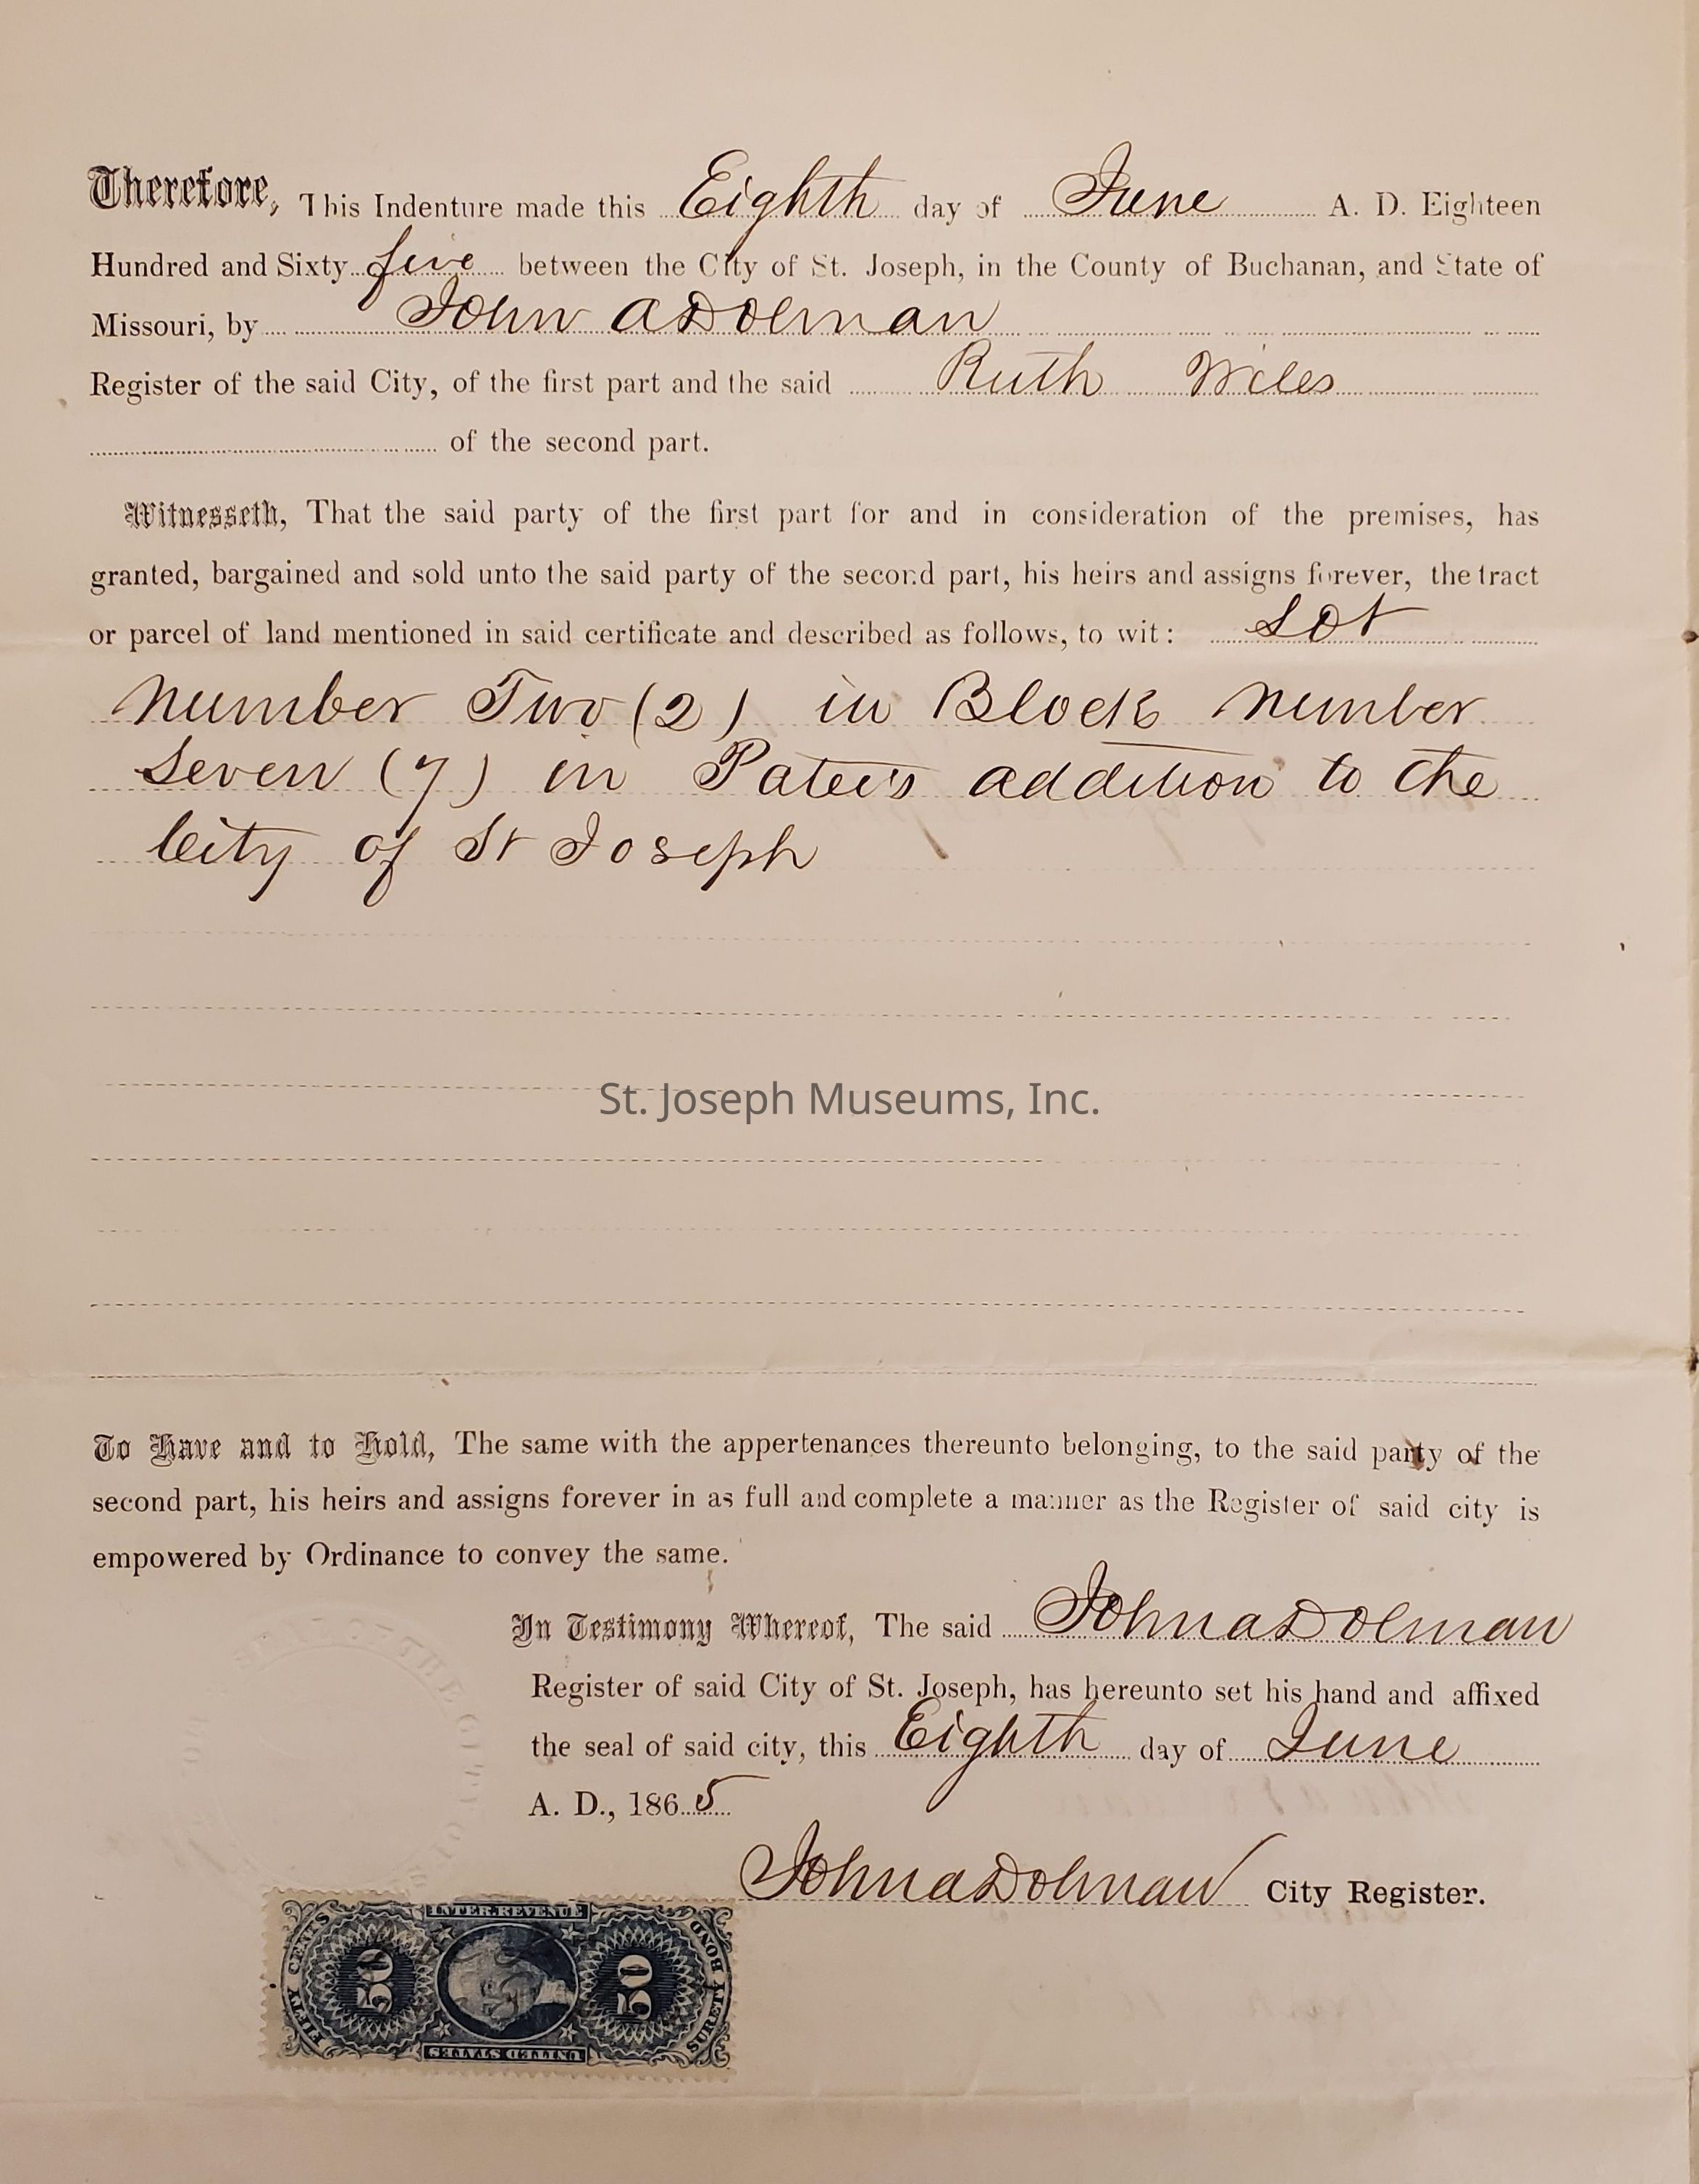 Therefore, This Indenture made this Eighth day of June A. D. Eighteen
Hundred and Sixty five between the City of St. Joseph, in the County of Buchanan, and State of
Missouri, by John A Dolman
Register of the said City, of the first part and the said Ruth Wiles
of the second part.
Witnesseth, That the said party of the first part for and in consideration of the premises, has
granted, bargained and sold unto the said party of the second part, his heirs and assigns forever, the tract
or parcel of land mentioned in said certificate and described as follows, to wit: Lot
Number Two (2) in Block Number
Seven (7) in Patee's addition to the
City of St Joseph
St. Joseph Museums, Inc.
To Have and to Hold, The same with the appertenances thereunto belonging, to the said party of the
second part, his heirs and assigns forever in as full and complete a manner as the Register of said city is
empowered by Ordinance to convey the same.
In Testimony Whereof, The said John A Dolman
Register of said City of St. Joseph, has hereunto set his hand and affixed
the seal of said city, this Eighth day of June
A. D., 1865
John A Dolman City Register.
SEAL OF THE CITY OF
INTER. REVENUE
FIFTY CENTS
50
50
SURETY BOND
UNITED STATES